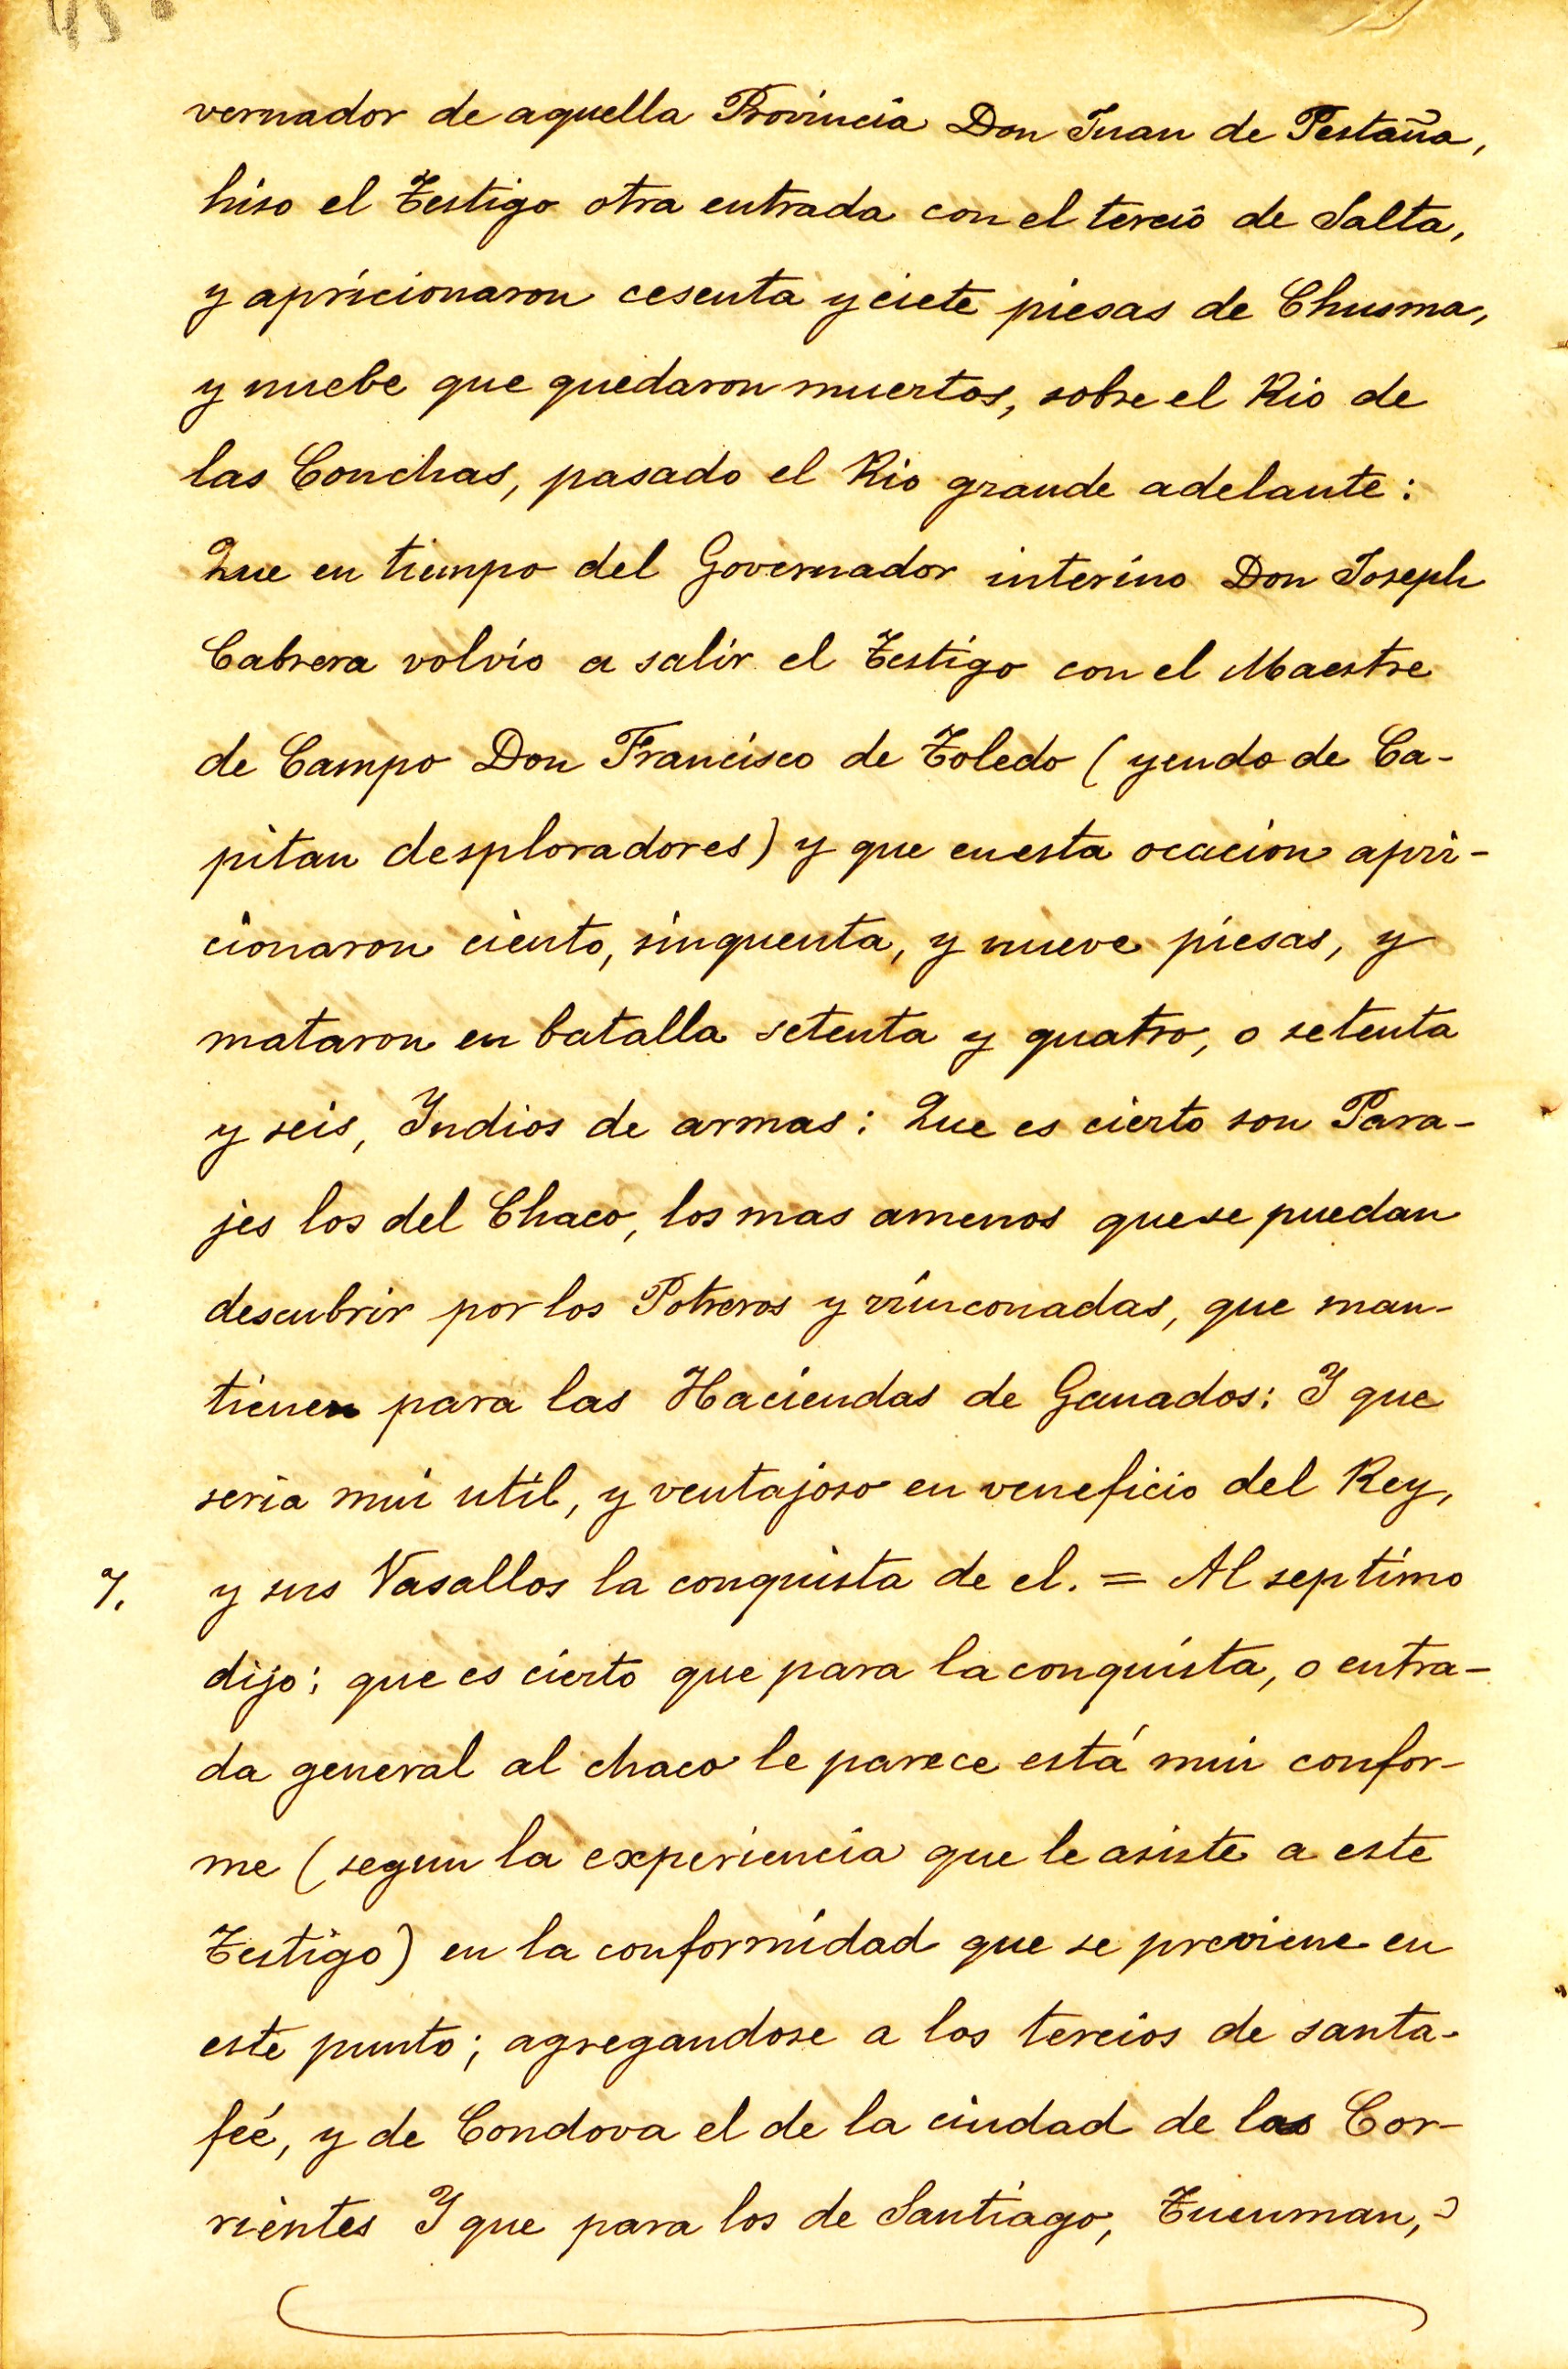 vernador de aquella Provincia Don Juan de Pestaña,
hiso el Testigo otra entrada con el tercio de Salta,
y apricionaron cesenta y ciete piesas de Chusma,
y nuebe que quedaron muertos, sobre el Rio de
las Conchas, pasado el Rio grande adelante:
Que en tiempo del Governador interino Don Joseph
Cabrera volvio a salir el Testigo con el Maestre
de Campo Don Francisco de Toledo (yendo de Ca-
pitan desploradores) y que enesta ocacion apri-
cionaron ciento, sinquenta, y nueve piesas, y
mataron en batalla setenta y quatro, o setenta
y seis, Indios de armas: Que es cierto son Para-
jes los del Chaco, los mas amenos quese puedan
descubrir por los Potreros y rinconadas, que man-
tienen para las Haciendas de Ganados: Y que
seria mui util, y ventajoso en veneficio del Rey,
7. y sus Vasallos la conquista de el. = Al septimo
dijo: que es cierto que para la conquista, o entra-
da general al chaco le parece está mui confor-
me (segun la experiencia que le asiste a este
Testigo) en la conformidad que se previene en
este punto; agregandose a los tercios de santa-
feé, y de Condova el de la ciudad de las Cor-
rientes Y que para los de Santiago, Tucuman,